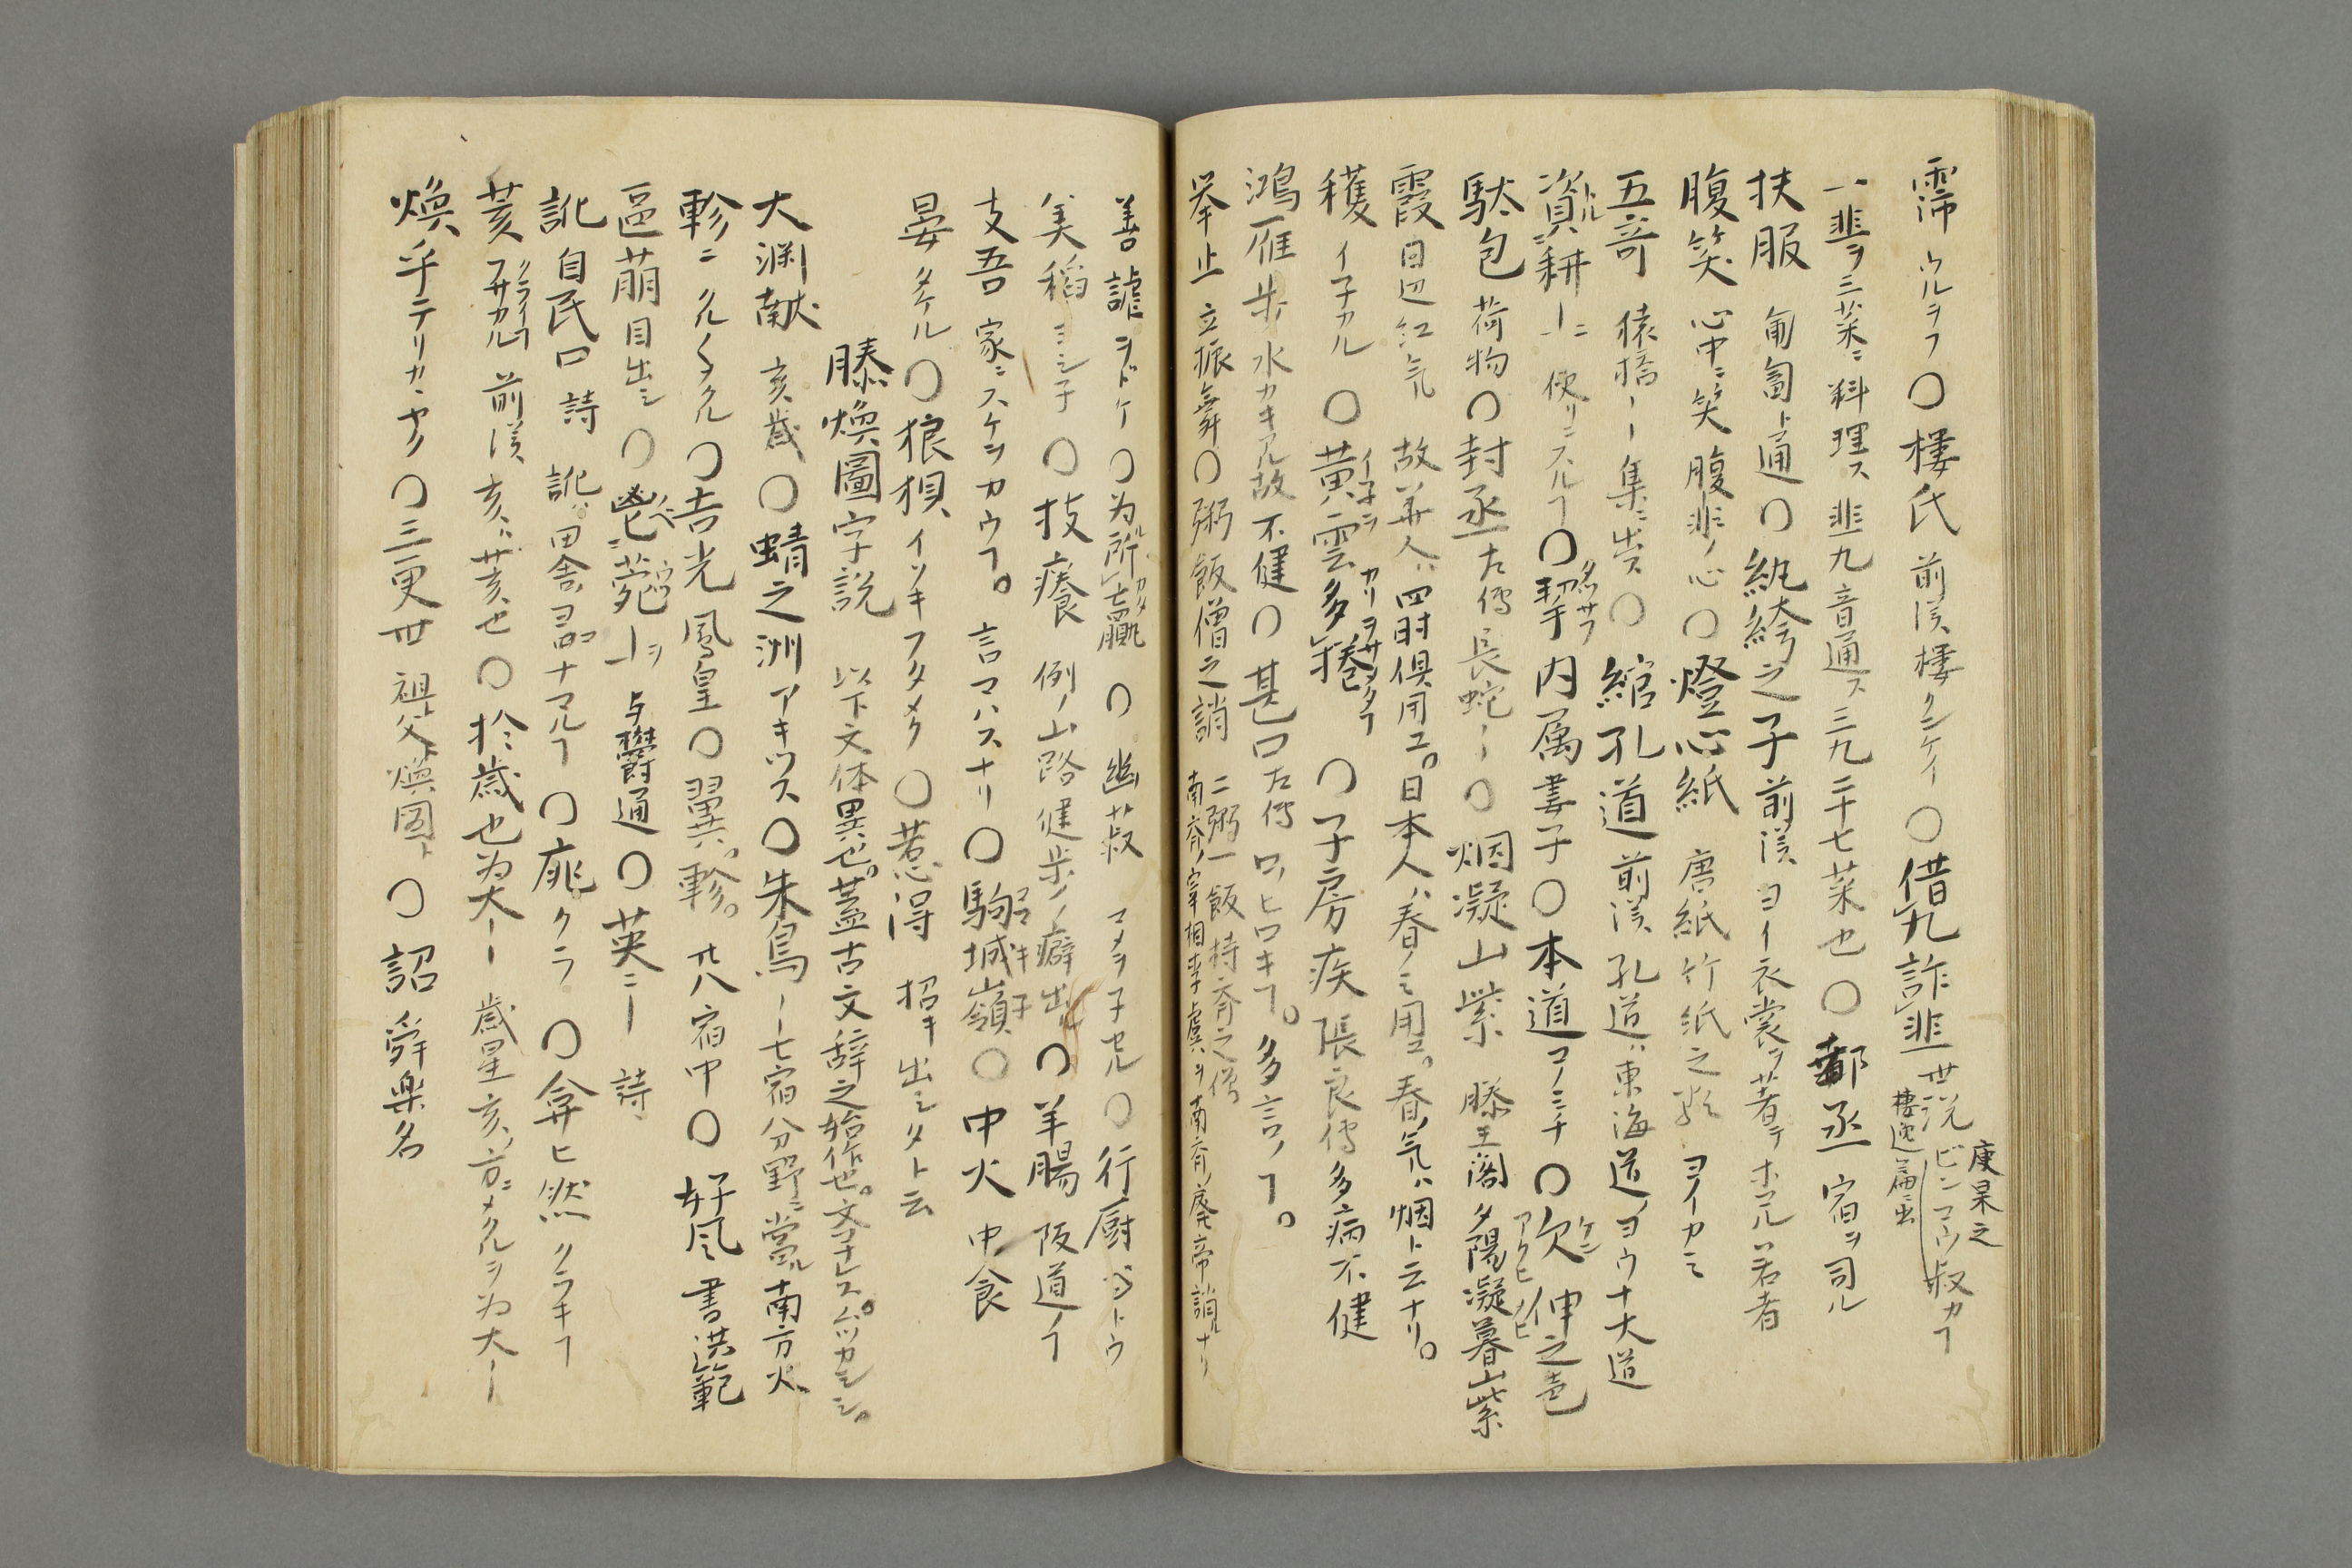 霈 ウルヲフ〇樓氏 前漢樓クンケイ〇借九詐韭 世説ビンコウ叔カフ
庾杲之
棲逸篇ニ出
一韭ヲ三菜ニ料理ス 韭九音通ス三九二十七菜也〇都丞 宿ヲ司ル
扶服 匍匐ト通〇紈綺之子 前漢 ヨイ衣裳ヲ著テホコル若者
腹笑 心中ニ笑 腹非ノ心〇燈心紙 唐紙竹紙之類 ヨイカミ
五奇 猿橋ー集ニ出ス〇綰孔道 前漢 孔道ハ東海道ノヨウナ大道
資耕ーニ 便リニスルフ〇挈内属 妻子〇本道 コノミチ〇欠伸之色
駄包 荷物〇封丞 左傳長蛇ー〇烟凝山紫 滕王閣夕陽凝暮山紫
霞 日辺紅気 故華人ハ四時倶用ユ。日本人ハ春ノミ用ユ。春ノ気ハ烟ト云ナリ。
穫 イ子カル〇黄雲多穫〇子房疾 張良傳多病不健
鴻雁歩 水カキアル故不健〇甚口 左傳 口ノヒロキフ。多言ノフ。
挙止 立振舞〇粥飯僧之誚 二粥一飯持斎之僧
南斉ノ宰相李虞ヲ南斉ノ廃帝誚ルナリ
善謔 ヲドケ〇为所七贏〇幽菽 マメヲ子セル〇行廚 ベントウ
美稻 ヨシ子〇技癢 例ノ山路健歩ノ癖出ル〇羊腸 阪道ノフ
支吾 家ニスケヲカウフ。言マハスナリ〇駒城嶺〇中火 中食
晏 タケル〇狼狽 イソキフタメク〇惹得 招キ出シタト云
滕煥圖字説 以下文体異也。蓋古文辞之始作也。文ナレスムツカシシ。
大渊献 亥歳〇蜻之洲 アキツス〇朱鳥ー 七宿分野ニ當ル南方火
軫ニ クルくタクル〇吉光 鳳皇〇翼ハ。軫。廿八宿中〇好風 書洪範
區萠 目出シ〇鬯ニ菀ーヲ 与欝通〇英ニー 詩
訛自民口 詩 訛ハ。田舎ヨコナマルフ〇庬 クラ。〇弇ヒ然 クラキフ
荄 フサカル 前漢 亥ハ荄也〇於歳也为大ー 歳星亥ノ方ニメクルヲ为大ー
煥乎 テリカヽヤク〇三更世 祖ト父ト煥圖ト〇詔 舜楽名